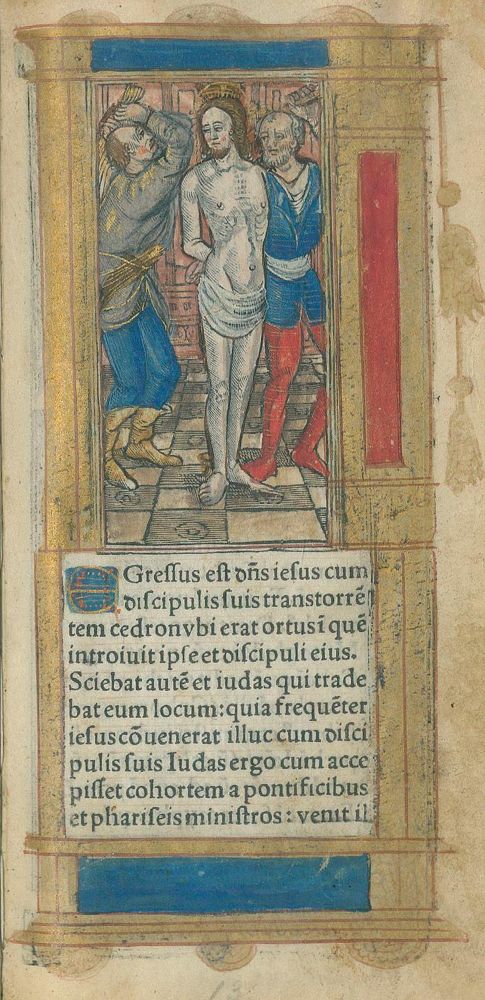 EGressus est dñs iesus cum
discipulis suis transtorrẽ
tem cedron vbi erat ortus ĩ quẽ
introiuit ipse et discipuli eius.
Sciebat autẽ et iudas qui trade
bat eum locum: quia frequẽter
iesus cõuenerat illuc cum disci
pulis suis Iudas ergo cum acce
pisset cohortem a pontificibus
et phariseis ministros: venit il